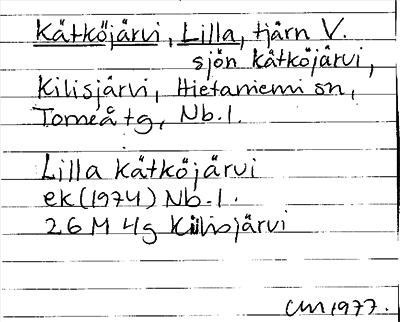 Kätköjärvi, Lilla, tjärn V.
sjön Kätköjärvi,
Kilisjärvi, Hietaniemi sn,
Torneå tg, Nb.l.
Lilla Kätköjärvi
ek (1974) Nb.l.
26 M 4g Kilisjärvi
CM 1977.